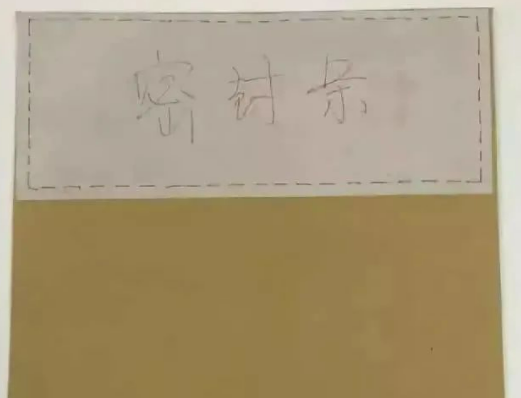 密封条